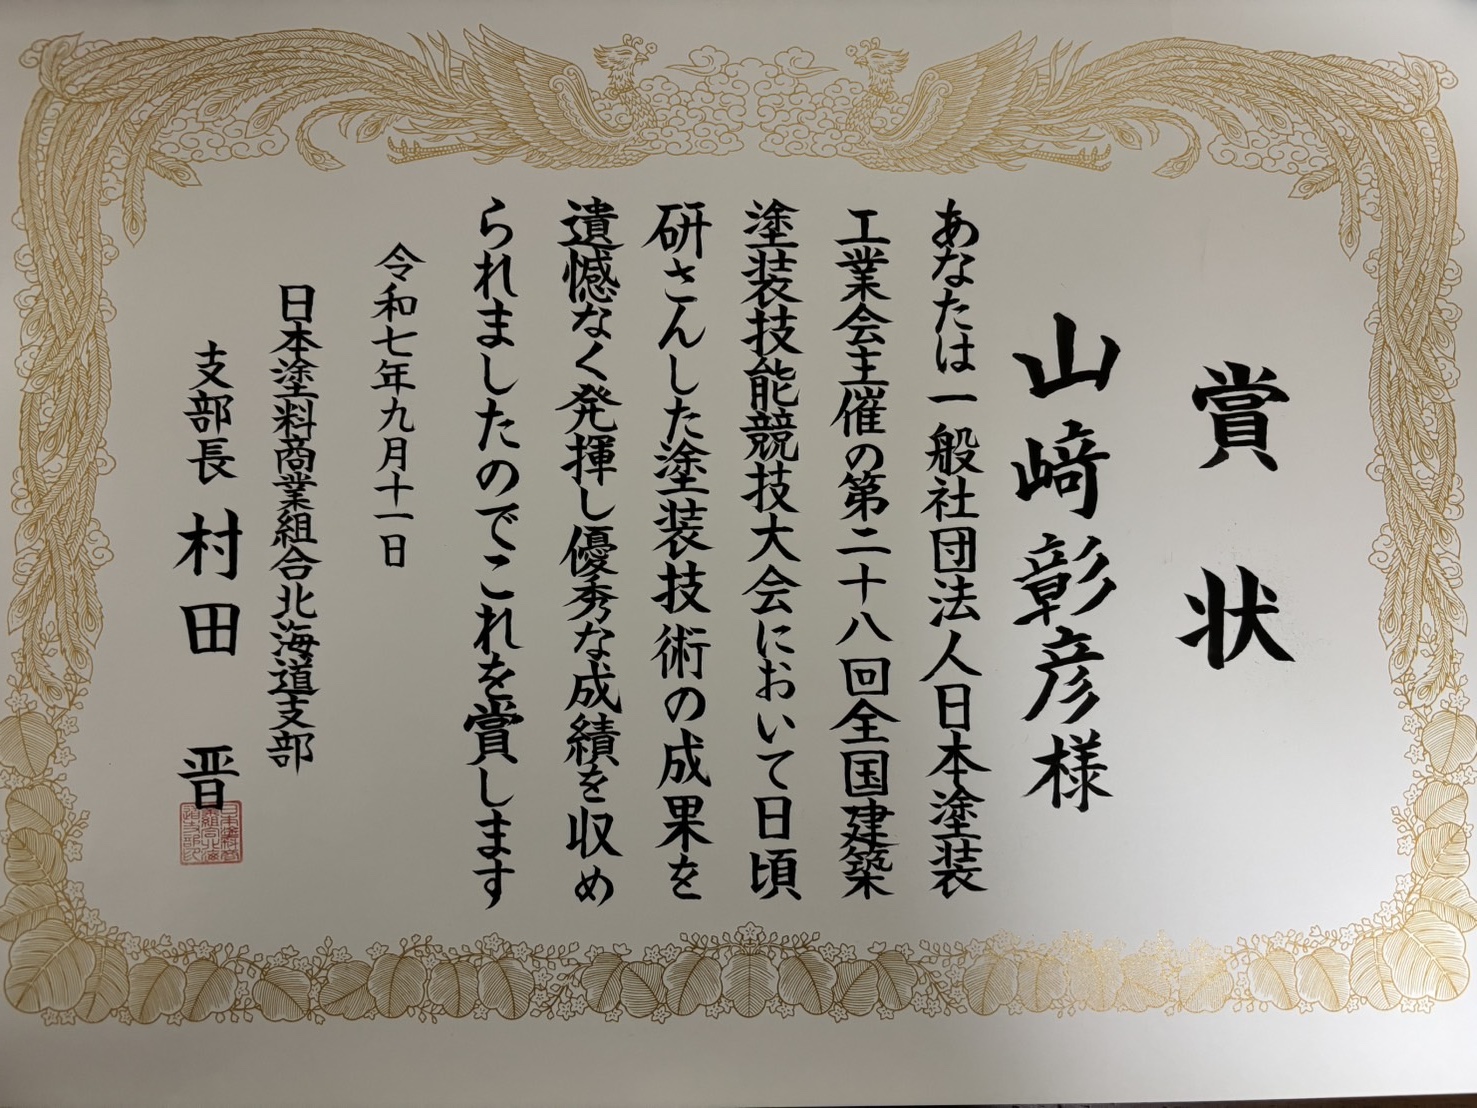 賞状
山﨑彰彦様
あなたは一般社団法人日本塗装
工業会主催の第二十八回全国建築
塗装技能競技大会において日頃
研さんした塗装技術の成果を
遺憾なく発揮し優秀な成績を収め
られましたのでこれを賞します
令和七年九月十一日
日本塗料商業組合北海道支部
支部長 村田 晋